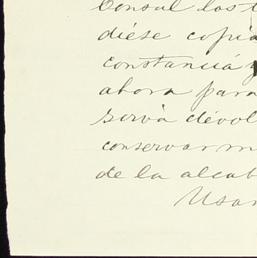 Consul los
diése copia
constancia y
ahora para
sirvà devol
conservar m
de la alcab
Usan